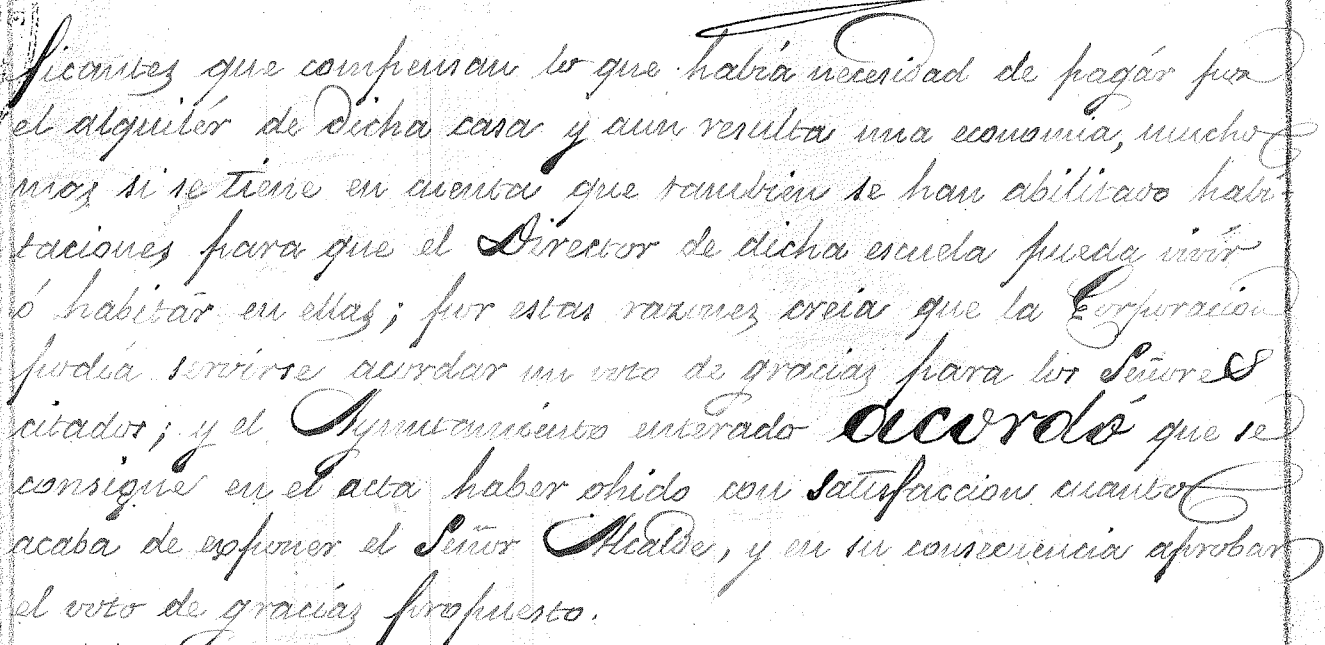 ficantes que compensan lo que habia necesidad de pagár por
el alquilér de dicha casa y aun resulta una economia, mucho
mas si se tiene en cuenta que tambien se han abilitado habi-
taciones para que el Director de dicha escuela pueda vivir
ó habitár en ellas; por estas razones creia que la Corporacion
podia servirse acordar un voto de gracias para los Señores
citados; y el Ayuntamiento enterado acordó que se
consigne en el acta haber ohido con satisfaccion cuanto
acaba de exponer el Señor Alcalde, y en su consecuencia aprobar
el voto de gracias propuesto.